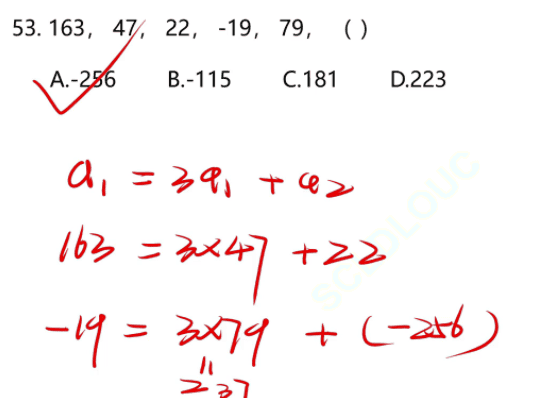 53. 163， 47， 22， -19， 79，（ ）
A.-256 B.-115 C.181 D.223
a₁ = 3a₁ + a₂
163 = 3×47 + 22
-19 = 3×79 + (-256)
"
237